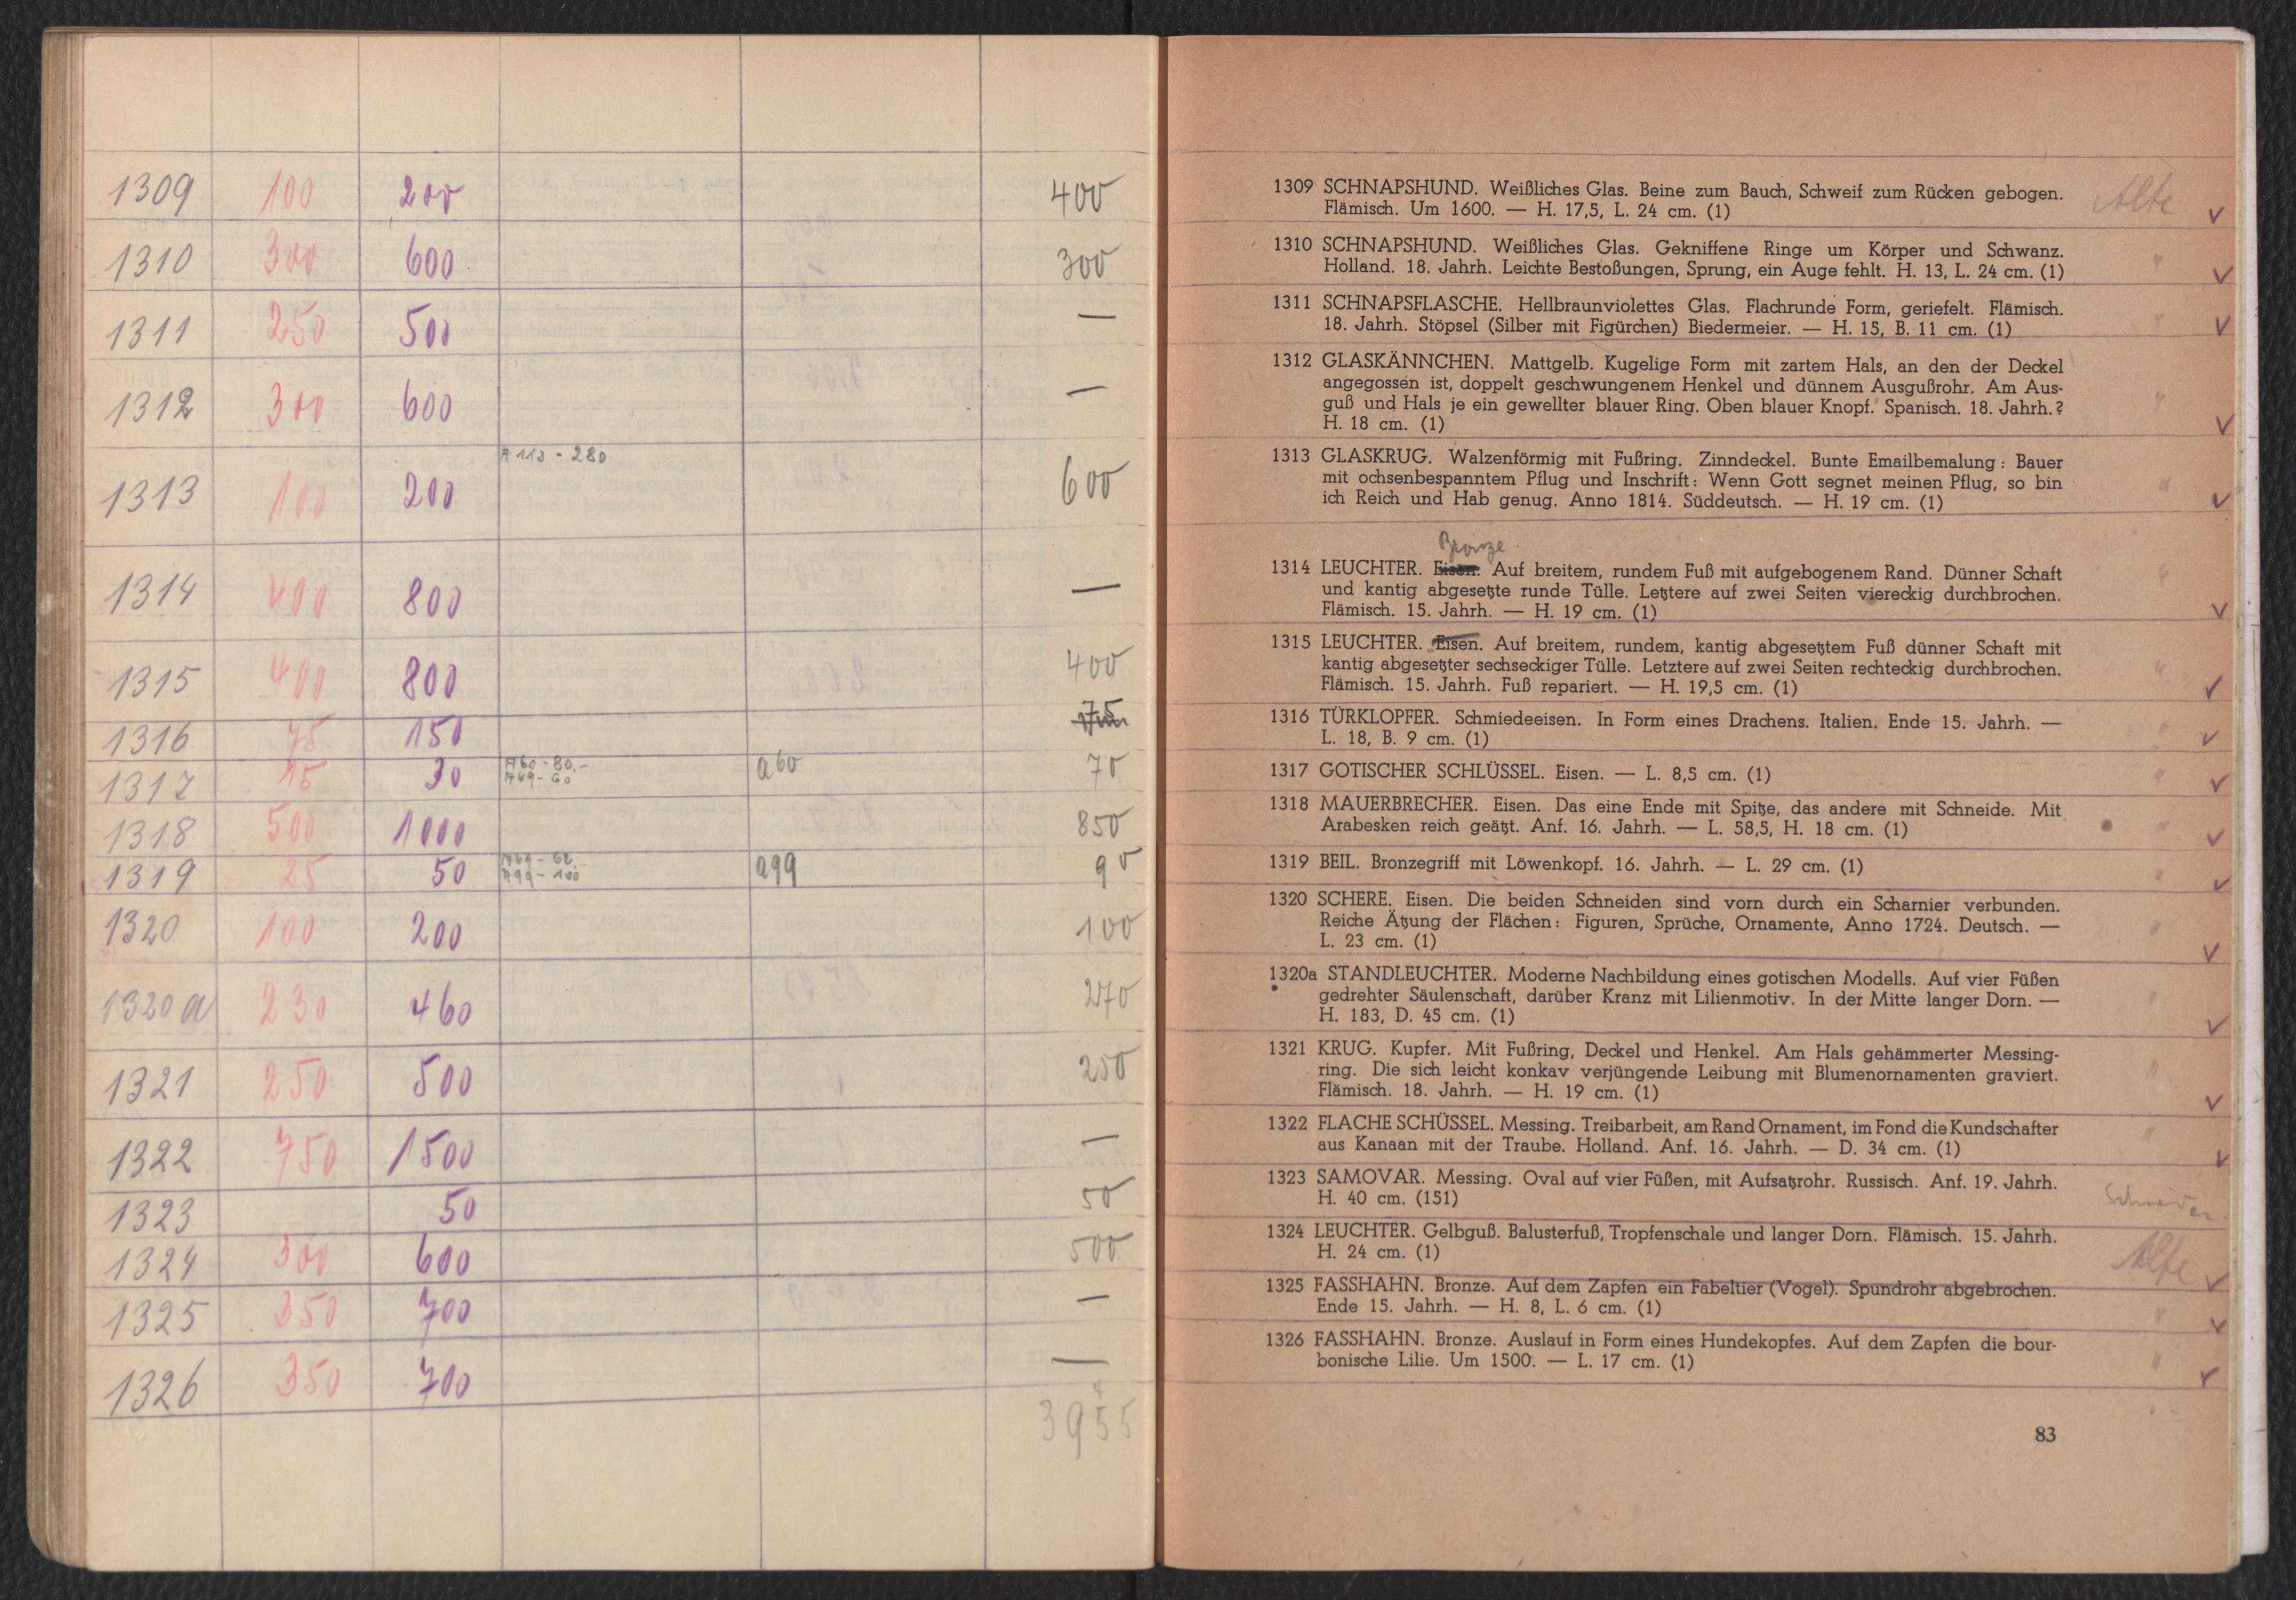 1309 100 200 400
1310 300 600 300
1311 250 500 —
1312 300 600 —
A 113 - 280
1313 100 200 600
1314 400 800 —
1315 400 800 400
1316 75 150 75
A60 - 80.-
1317 15 30 A69 - 60 a60 70
1318 500 1000 850
1319 25 50 A99 - 100 a99 90
1320 100 200 100
1320a 230 460 270
1321 250 500 250
1322 750 1500 —
1323 50 50
1324 300 600 500
1325 350 700 —
1326 350 700 —
3955
1309 SCHNAPSHUND. Weißliches Glas. Beine zum Bauch, Schweif zum Rücken gebogen. Alte
Flämisch. Um 1600. — H. 17,5, L. 24 cm. (1) ✓
1310 SCHNAPSHUND. Weißliches Glas. Gekniffene Ringe um Körper und Schwanz. "
Holland. 18. Jahrh. Leichte Bestoßungen, Sprung, ein Auge fehlt. H. 13, L. 24 cm. (1) ✓
1311 SCHNAPSFLASCHE. Hellbraunviolettes Glas. Flachrunde Form, geriefelt. Flämisch. "
18. Jahrh. Stöpsel (Silber mit Figürchen) Biedermeier. — H. 15, B. 11 cm. (1) ✓
1312 GLASKÄNNCHEN. Mattgelb. Kugelige Form mit zartem Hals, an den der Deckel
angegossen ist, doppelt geschwungenem Henkel und dünnem Ausgußrohr. Am Aus-
guß und Hals je ein gewellter blauer Ring. Oben blauer Knopf. Spanisch. 18. Jahrh.? "
H. 18 cm. (1) ✓
1313 GLASKRUG. Walzenförmig mit Fußring. Zinndeckel. Bunte Emailbemalung: Bauer
mit ochsenbespanntem Pflug und Inschrift: Wenn Gott segnet meinen Pflug, so bin "
ich Reich und Hab genug. Anno 1814. Süddeutsch. — H. 19 cm. (1) ✓
Bronze.
1314 LEUCHTER. Eisen. Auf breitem, rundem Fuß mit aufgebogenem Rand. Dünner Schaft "
und kantig abgesetzte runde Tülle. Letztere auf zwei Seiten viereckig durchbrochen.
Flämisch. 15. Jahrh. — H. 19 cm. (1) ✓
1315 LEUCHTER. Eisen. Auf breitem, rundem, kantig abgesetztem Fuß dünner Schaft mit
kantig abgesetzter sechseckiger Tülle. Letztere auf zwei Seiten rechteckig durchbrochen. "
Flämisch. 15. Jahrh. Fuß repariert. — H. 19,5 cm. (1) ✓
1316 TÜRKLOPFER. Schmiedeeisen. In Form eines Drachens. Italien. Ende 15. Jahrh. —
L. 18, B. 9 cm. (1) " ✓
1317 GOTISCHER SCHLÜSSEL. Eisen. — L. 8,5 cm. (1) " ✓
1318 MAUERBRECHER. Eisen. Das eine Ende mit Spitze, das andere mit Schneide. Mit
Arabesken reich geätzt. Anf. 16. Jahrh. — L. 58,5, H. 18 cm. (1) " ✓
1319 BEIL. Bronzegriff mit Löwenkopf. 16. Jahrh. — L. 29 cm. (1) " ✓
1320 SCHERE. Eisen. Die beiden Schneiden sind vorn durch ein Scharnier verbunden.
Reiche Ätzung der Flächen: Figuren, Sprüche, Ornamente, Anno 1724. Deutsch. — "
L. 23 cm. (1) ✓
1320a STANDLEUCHTER. Moderne Nachbildung eines gotischen Modells. Auf vier Füßen
gedrehter Säulenschaft, darüber Kranz mit Lilienmotiv. In der Mitte langer Dorn. — "
H. 183, D. 45 cm. (1) ✓
1321 KRUG. Kupfer. Mit Fußring, Deckel und Henkel. Am Hals gehämmerter Messing-
ring. Die sich leicht konkav verjüngende Leibung mit Blumenornamenten graviert. "
Flämisch. 18. Jahrh. — H. 19 cm. (1) ✓
1322 FLACHE SCHÜSSEL. Messing. Treibarbeit, am Rand Ornament, im Fond die Kundschafter "
aus Kanaan mit der Traube. Holland. Anf. 16. Jahrh. — D. 34 cm. (1) ✓
1323 SAMOVAR. Messing. Oval auf vier Füßen, mit Aufsatzrohr. Russisch. Anf. 19. Jahrh.
H. 40 cm. (151)
1324 LEUCHTER. Gelbguß. Balusterfuß, Tropfenschale und langer Dorn. Flämisch. 15. Jahrh.
H. 24 cm. (1) Alte ✓
1325 FASSHAHN. Bronze. Auf dem Zapfen ein Fabeltier (Vogel). Spundrohr abgebrochen.
Ende 15. Jahrh. — H. 8, L. 6 cm. (1) " ✓
1326 FASSHAHN. Bronze. Auslauf in Form eines Hundekopfes. Auf dem Zapfen die bour-
bonische Lilie. Um 1500. — L. 17 cm. (1) " ✓
83